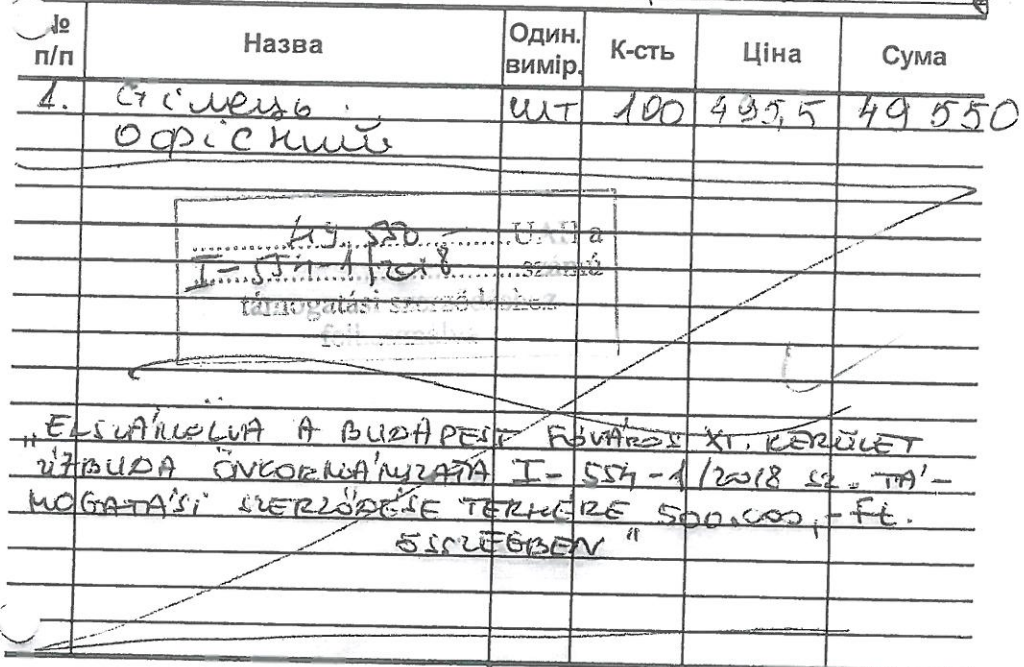 № п/п Назва Один. вимір. К-сть Ціна Сума
1. Стілець шт 100 495,5 49 550
офісний
49 550 - UAH a
I-554-1/2018 számú
támogatási szerződéshez
„ELSZÁMOLVA A BUDAPEST FŐVÁROS XI. KERÜLET
ÚJBUDA ÖNKORMÁNYZATA I-554-1/2018 SZ. TÁ-
MOGATÁSI SZERZŐDÉSE TERHÉRE 500.000,- Ft.
ÖSSZEGBEN"